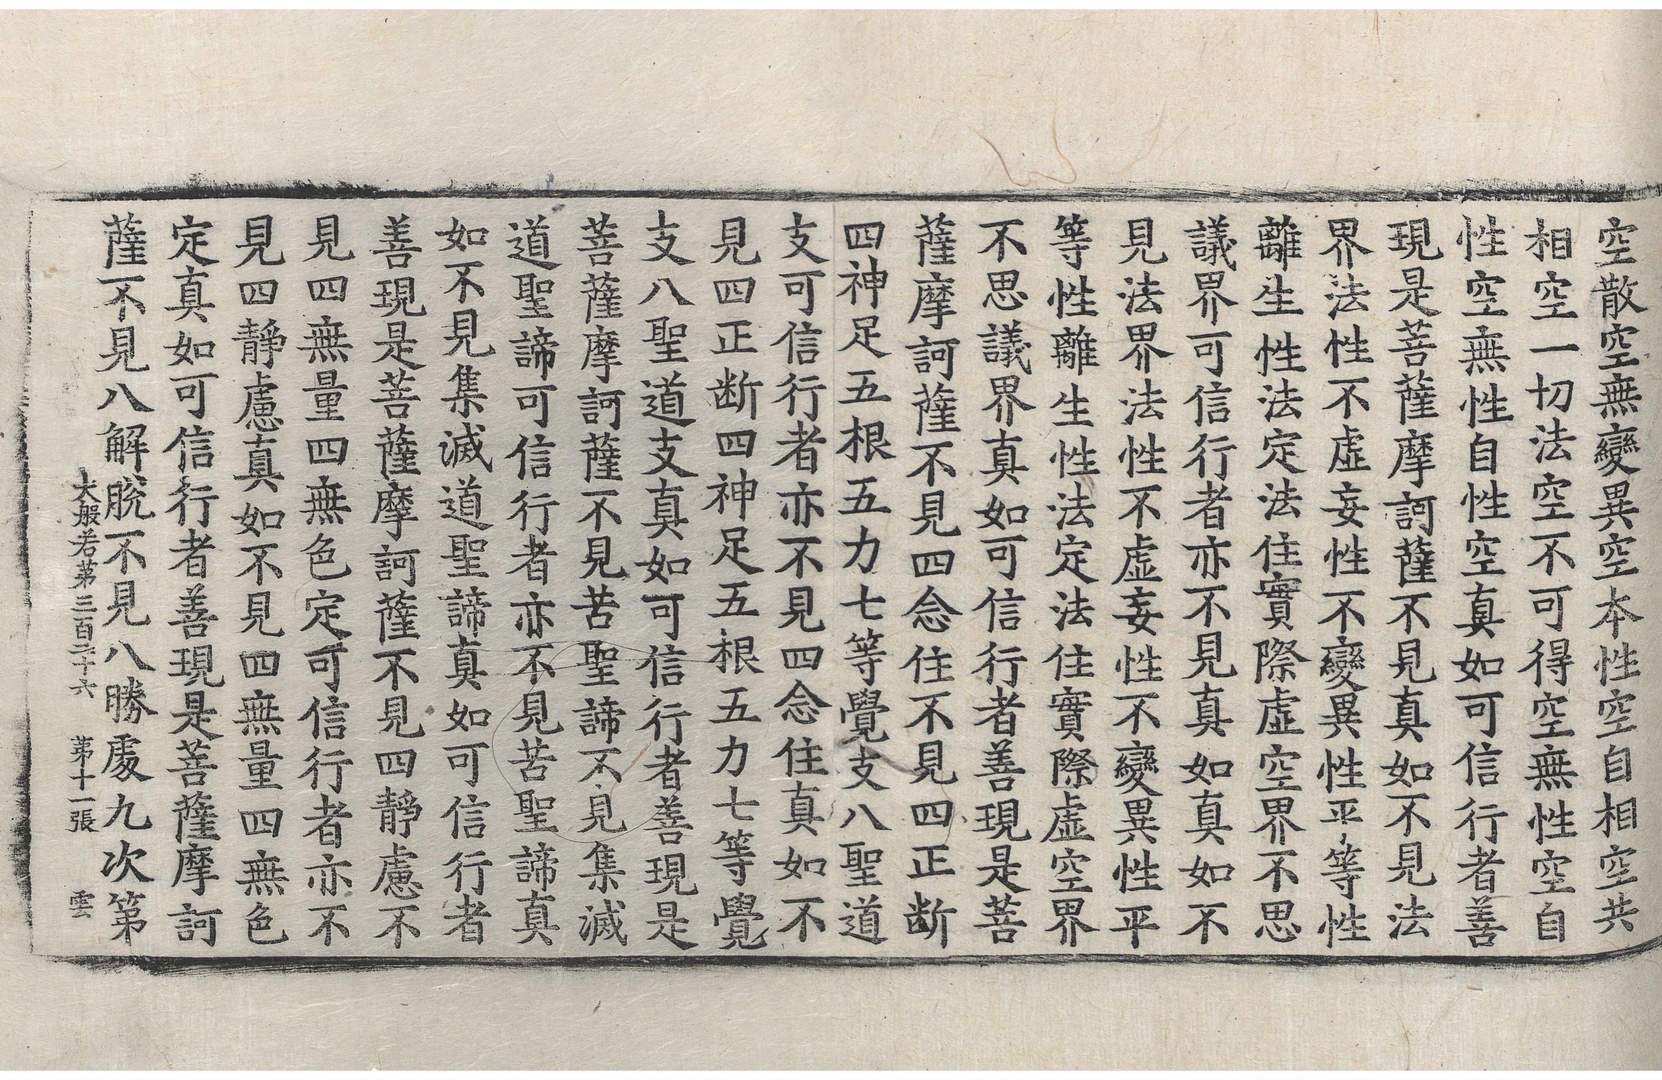 空散空無變異空本性空自相空共
相空一切法空不可得空無性空自
性空無性自性空真如可信行者善
現是菩薩摩訶薩不見真如不見法
界法性不虛妄性不變異性平等性
離生性法定法住實際虛空界不思
議界可信行者亦不見真如真如不
見法界法性不虛妄性不變異性平
等性離生性法定法住實際虛空界
不思議界真如可信行者善現是菩
薩摩訶薩不見四念住不見四正断
四神足五根五力七等覺支八聖道
支可信行者亦不見四念住真如不
見四正断四神足五根五力七等覺
支八聖道支真如可信行者善現是
菩薩摩訶薩不見苦聖諦不見集滅
道聖諦可信行者亦不見苦聖諦真
如不見集滅道聖諦真如可信行者
善現是菩薩摩訶薩不見四靜慮不
見四無量四無色定可信行者亦不
見四靜慮真如不見四無量四無色
定真如可信行者善現是菩薩摩訶
薩不見八解脫不見八勝處九次第
大般若第三百二十六 第十一張 雲